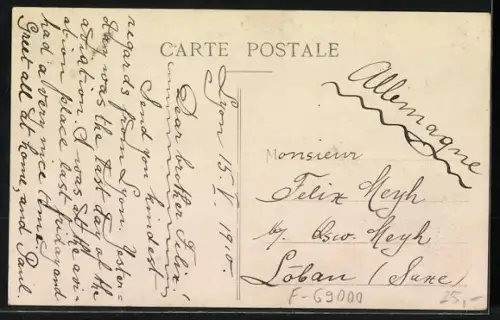 CARTE POSTALE
Lyon 15. V. 1910.
Dear brother Felix!
Send you kindest
regards from Lyon. Yester-
day was the last day of the
aviation. I was at the avi-
ation place last friday and
had a very nice time.
Greet all at home, and Paul.
Allemagne
Monsieur
Felix Heyh
Osw. Heyh
Löbau (Saxe)
F-69000
25,-